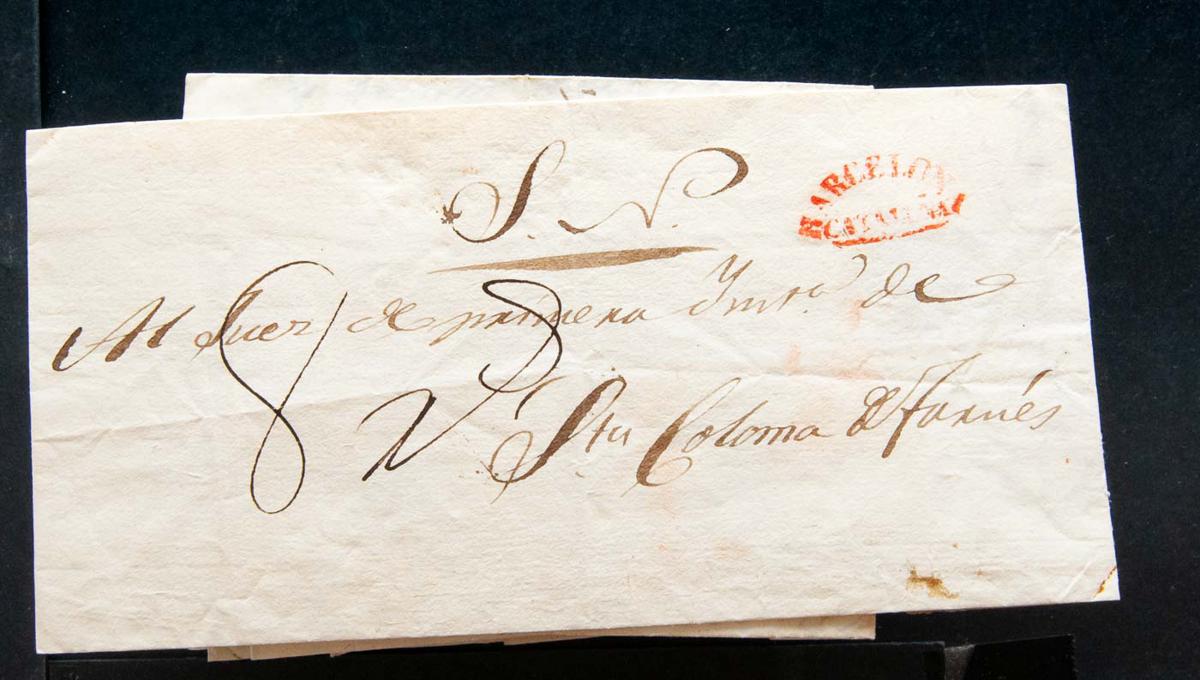 S. N.
BARCELONA
CATALUÑA
Al Juez de primera Ynsta. de
Sta Coloma de Farnés
8